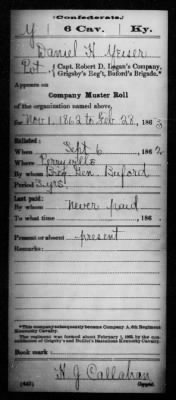 (Confederate.)
Y 6 Cav. Ky.
Daniel H
Pvt., Capt. Robert D. Logan's Company,
Grigsby's Reg't, Buford's Brigade.*
Appears on
Company Muster Roll
of the organization named above,
for Nov 1, 1862 to Feb 28, 1863
Enlisted:
When Sept 6, 1862
Where Perryville
By whom Brig Gen Buford
Period 3 yrs
Last paid:
By whom never paid
To what time , 186 .
Present or absent present
Remarks:
*This company subsequently became Company A, 6th Regiment
Kentucky Cavalry.
The regiment was formed about February 1, 1863, by the con-
solidation of Grigsby's and Butler's Battalions Kentucky Cavalry.
Book mark:
H. J. Callahan
(642) Copyist.